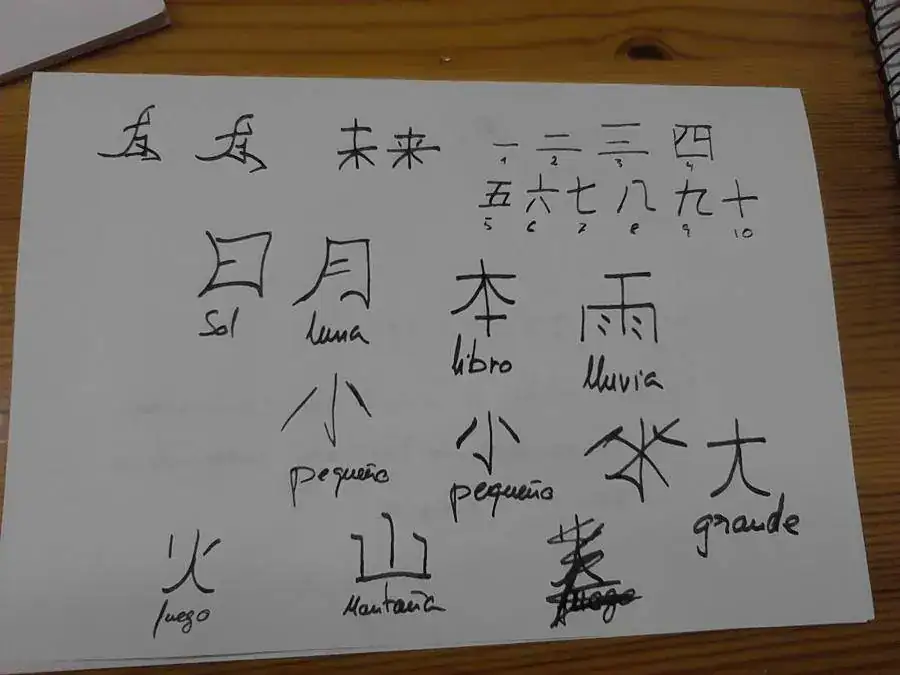 未来 一 二 三 四
1 2 3 4
五 六 七 八 九 十
5 6 7 8 9 10
日 月 本 雨
Sol luna libro lluvia
小 小 水 大
pequeño pequeño grande
火 山
fuego Montaña